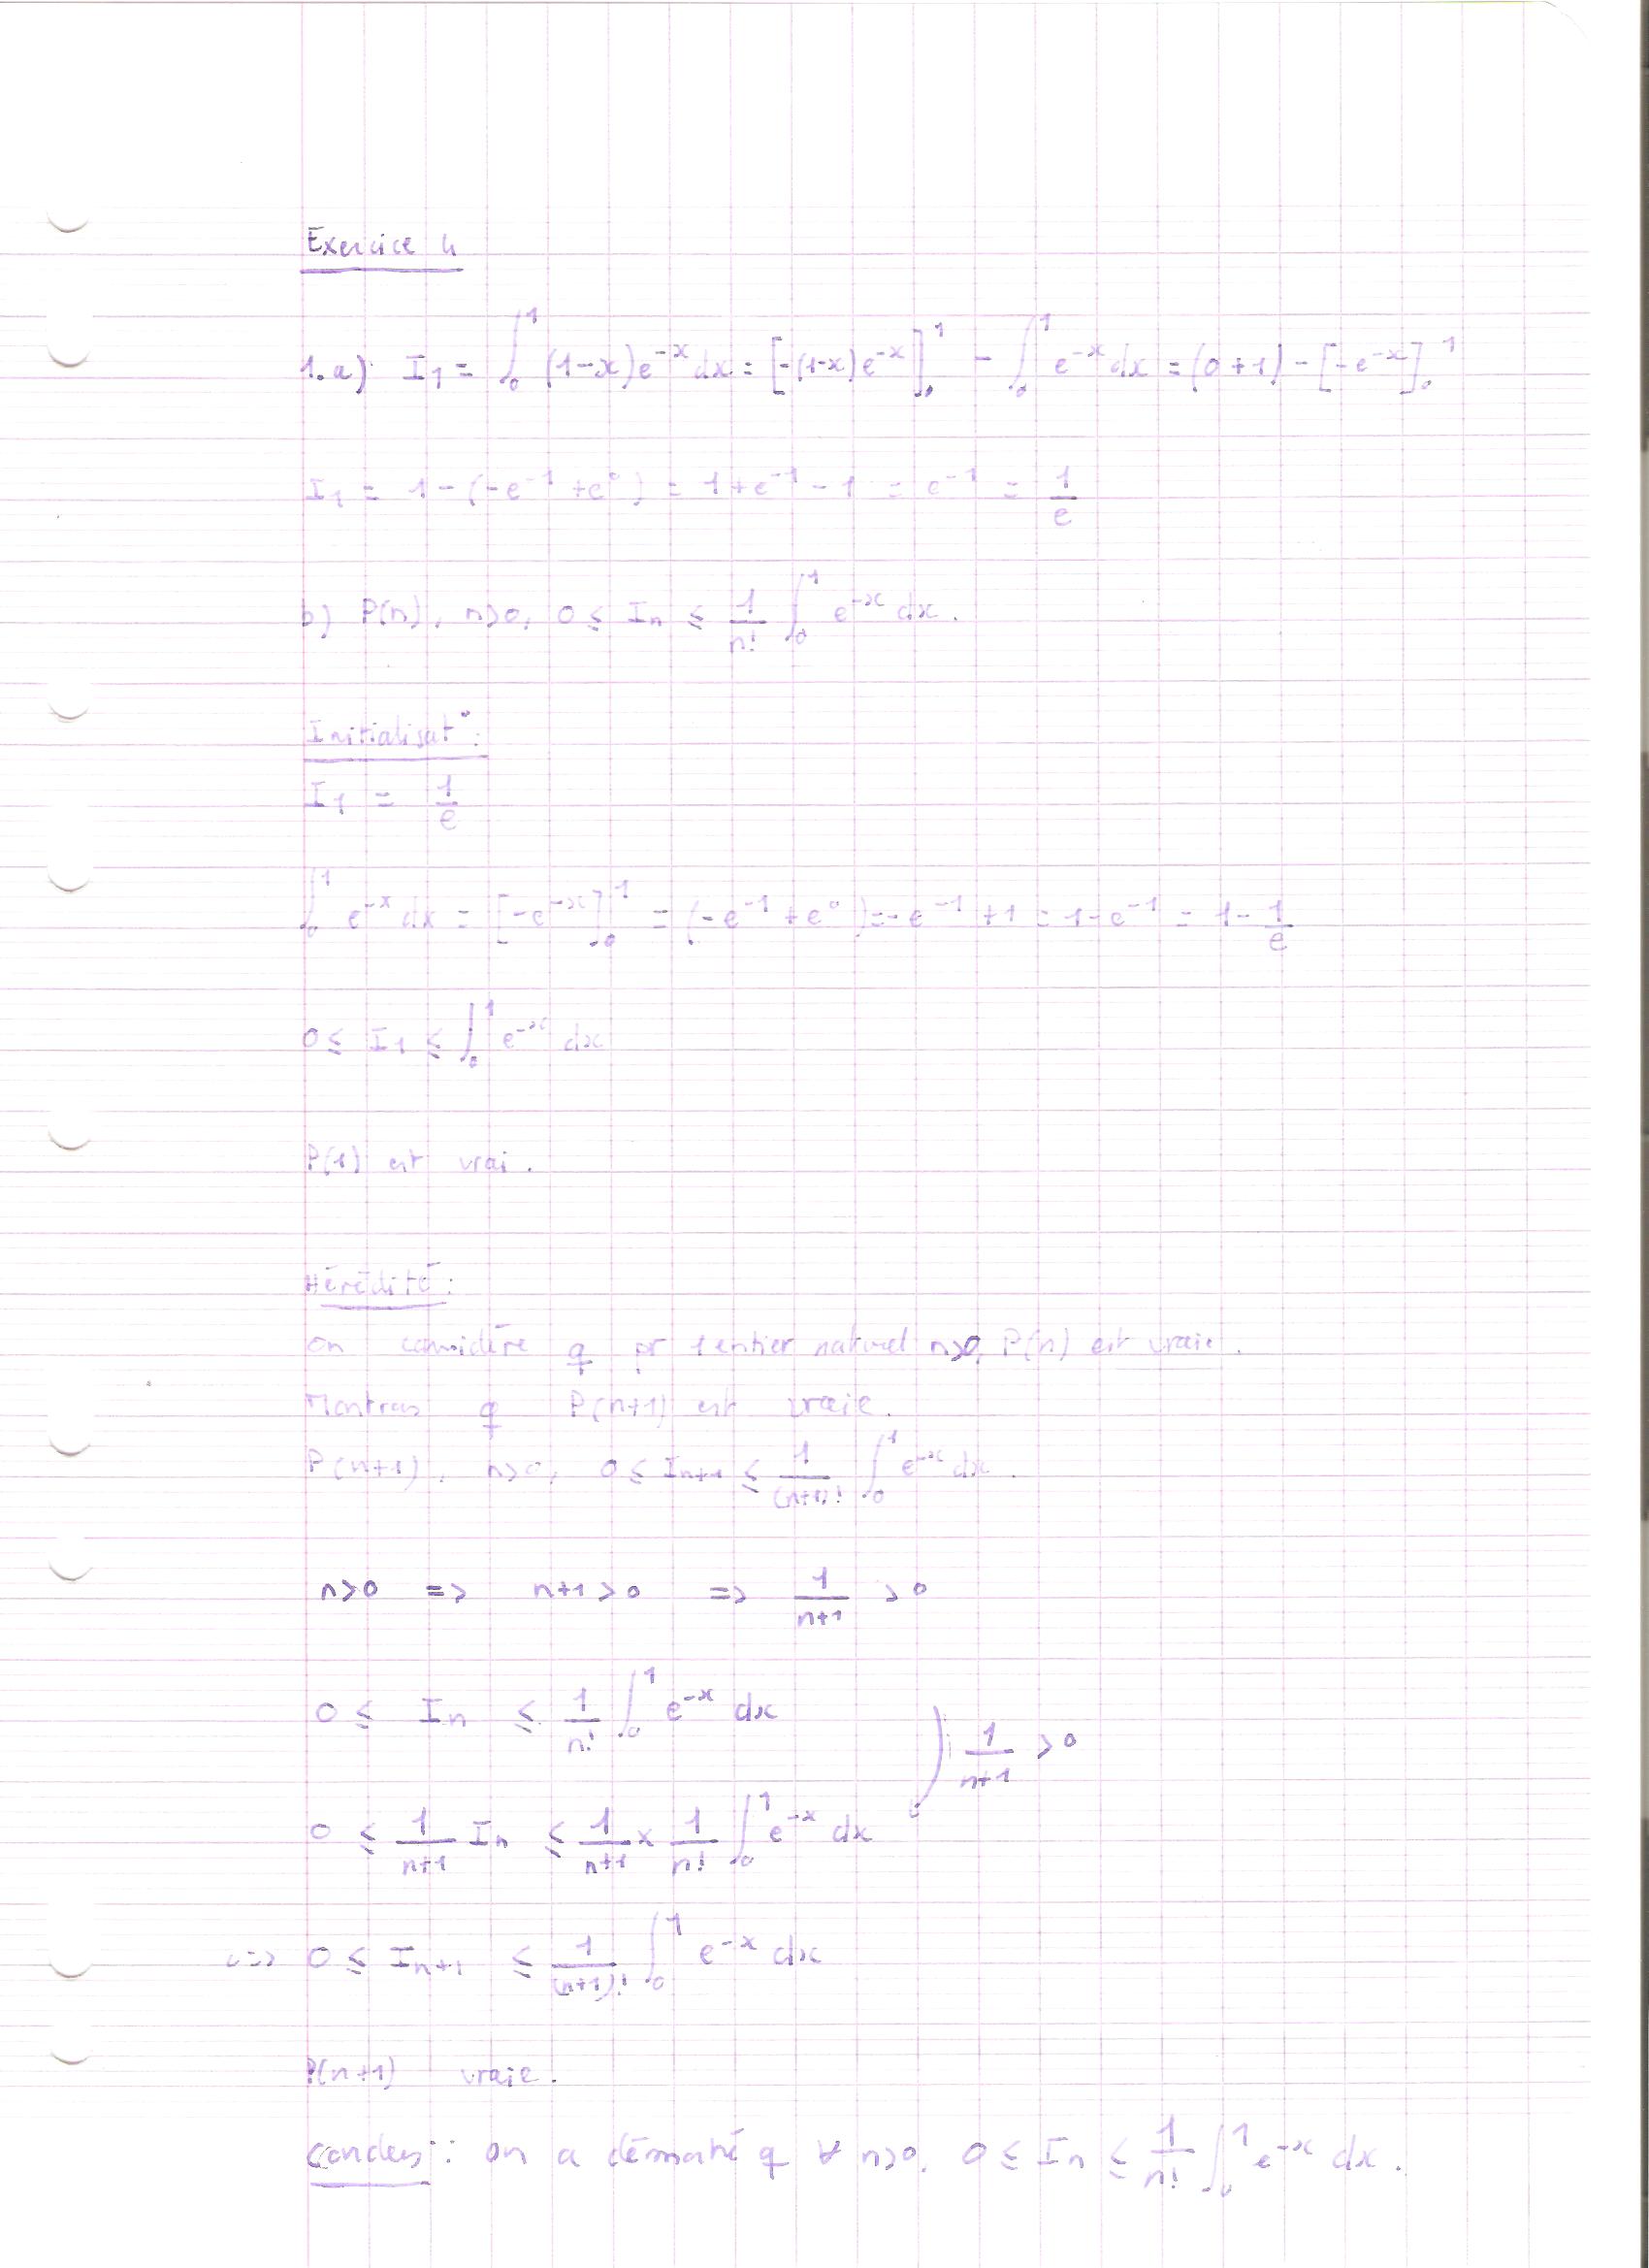 Exercice 4
1.a) I₁ = ∫₀¹ (1-x)e⁻ˣ dx = [-(1-x)e⁻ˣ]₀¹ - ∫₀¹ e⁻ˣ dx = (0+1) - [-e⁻ˣ]₀¹
I₁ = 1-(-e⁻¹+e⁰) = 1+e⁻¹-1 = e⁻¹ = 1/e
b) P(n), n>0, 0 ≤ Iₙ ≤ 1/n! ∫₀¹ e⁻ˣ dx.
Initialisat° :
I₁ = 1/e
∫₀¹ e⁻ˣ dx = [-e⁻ˣ]₀¹ = (-e⁻¹+e⁰) = -e⁻¹+1 = 1-e⁻¹ = 1-1/e
0 ≤ I₁ ≤ ∫₀¹ e⁻ˣ dx
P(1) est vrai.
Hérédité :
On considère q pr 1 entier naturel n>0, P(n) est vraie.
Montrons q P(n+1) est vraie.
P(n+1), n>0, 0 ≤ Iₙ₊₁ ≤ 1/(n+1)! ∫₀¹ e⁻ˣ dx.
n>0 => n+1>0 => 1/(n+1) >0
0 ≤ Iₙ ≤ 1/n! ∫₀¹ e⁻ˣ dx
1/(n+1) >0
0 ≤ 1/(n+1) Iₙ ≤ 1/(n+1) × 1/n! ∫₀¹ e⁻ˣ dx
<=> 0 ≤ Iₙ₊₁ ≤ 1/(n+1)! ∫₀¹ e⁻ˣ dx
P(n+1) vraie.
: on a démontré q ∀ n>0, 0 ≤ Iₙ ≤ 1/n! ∫₀¹ e⁻ˣ dx.